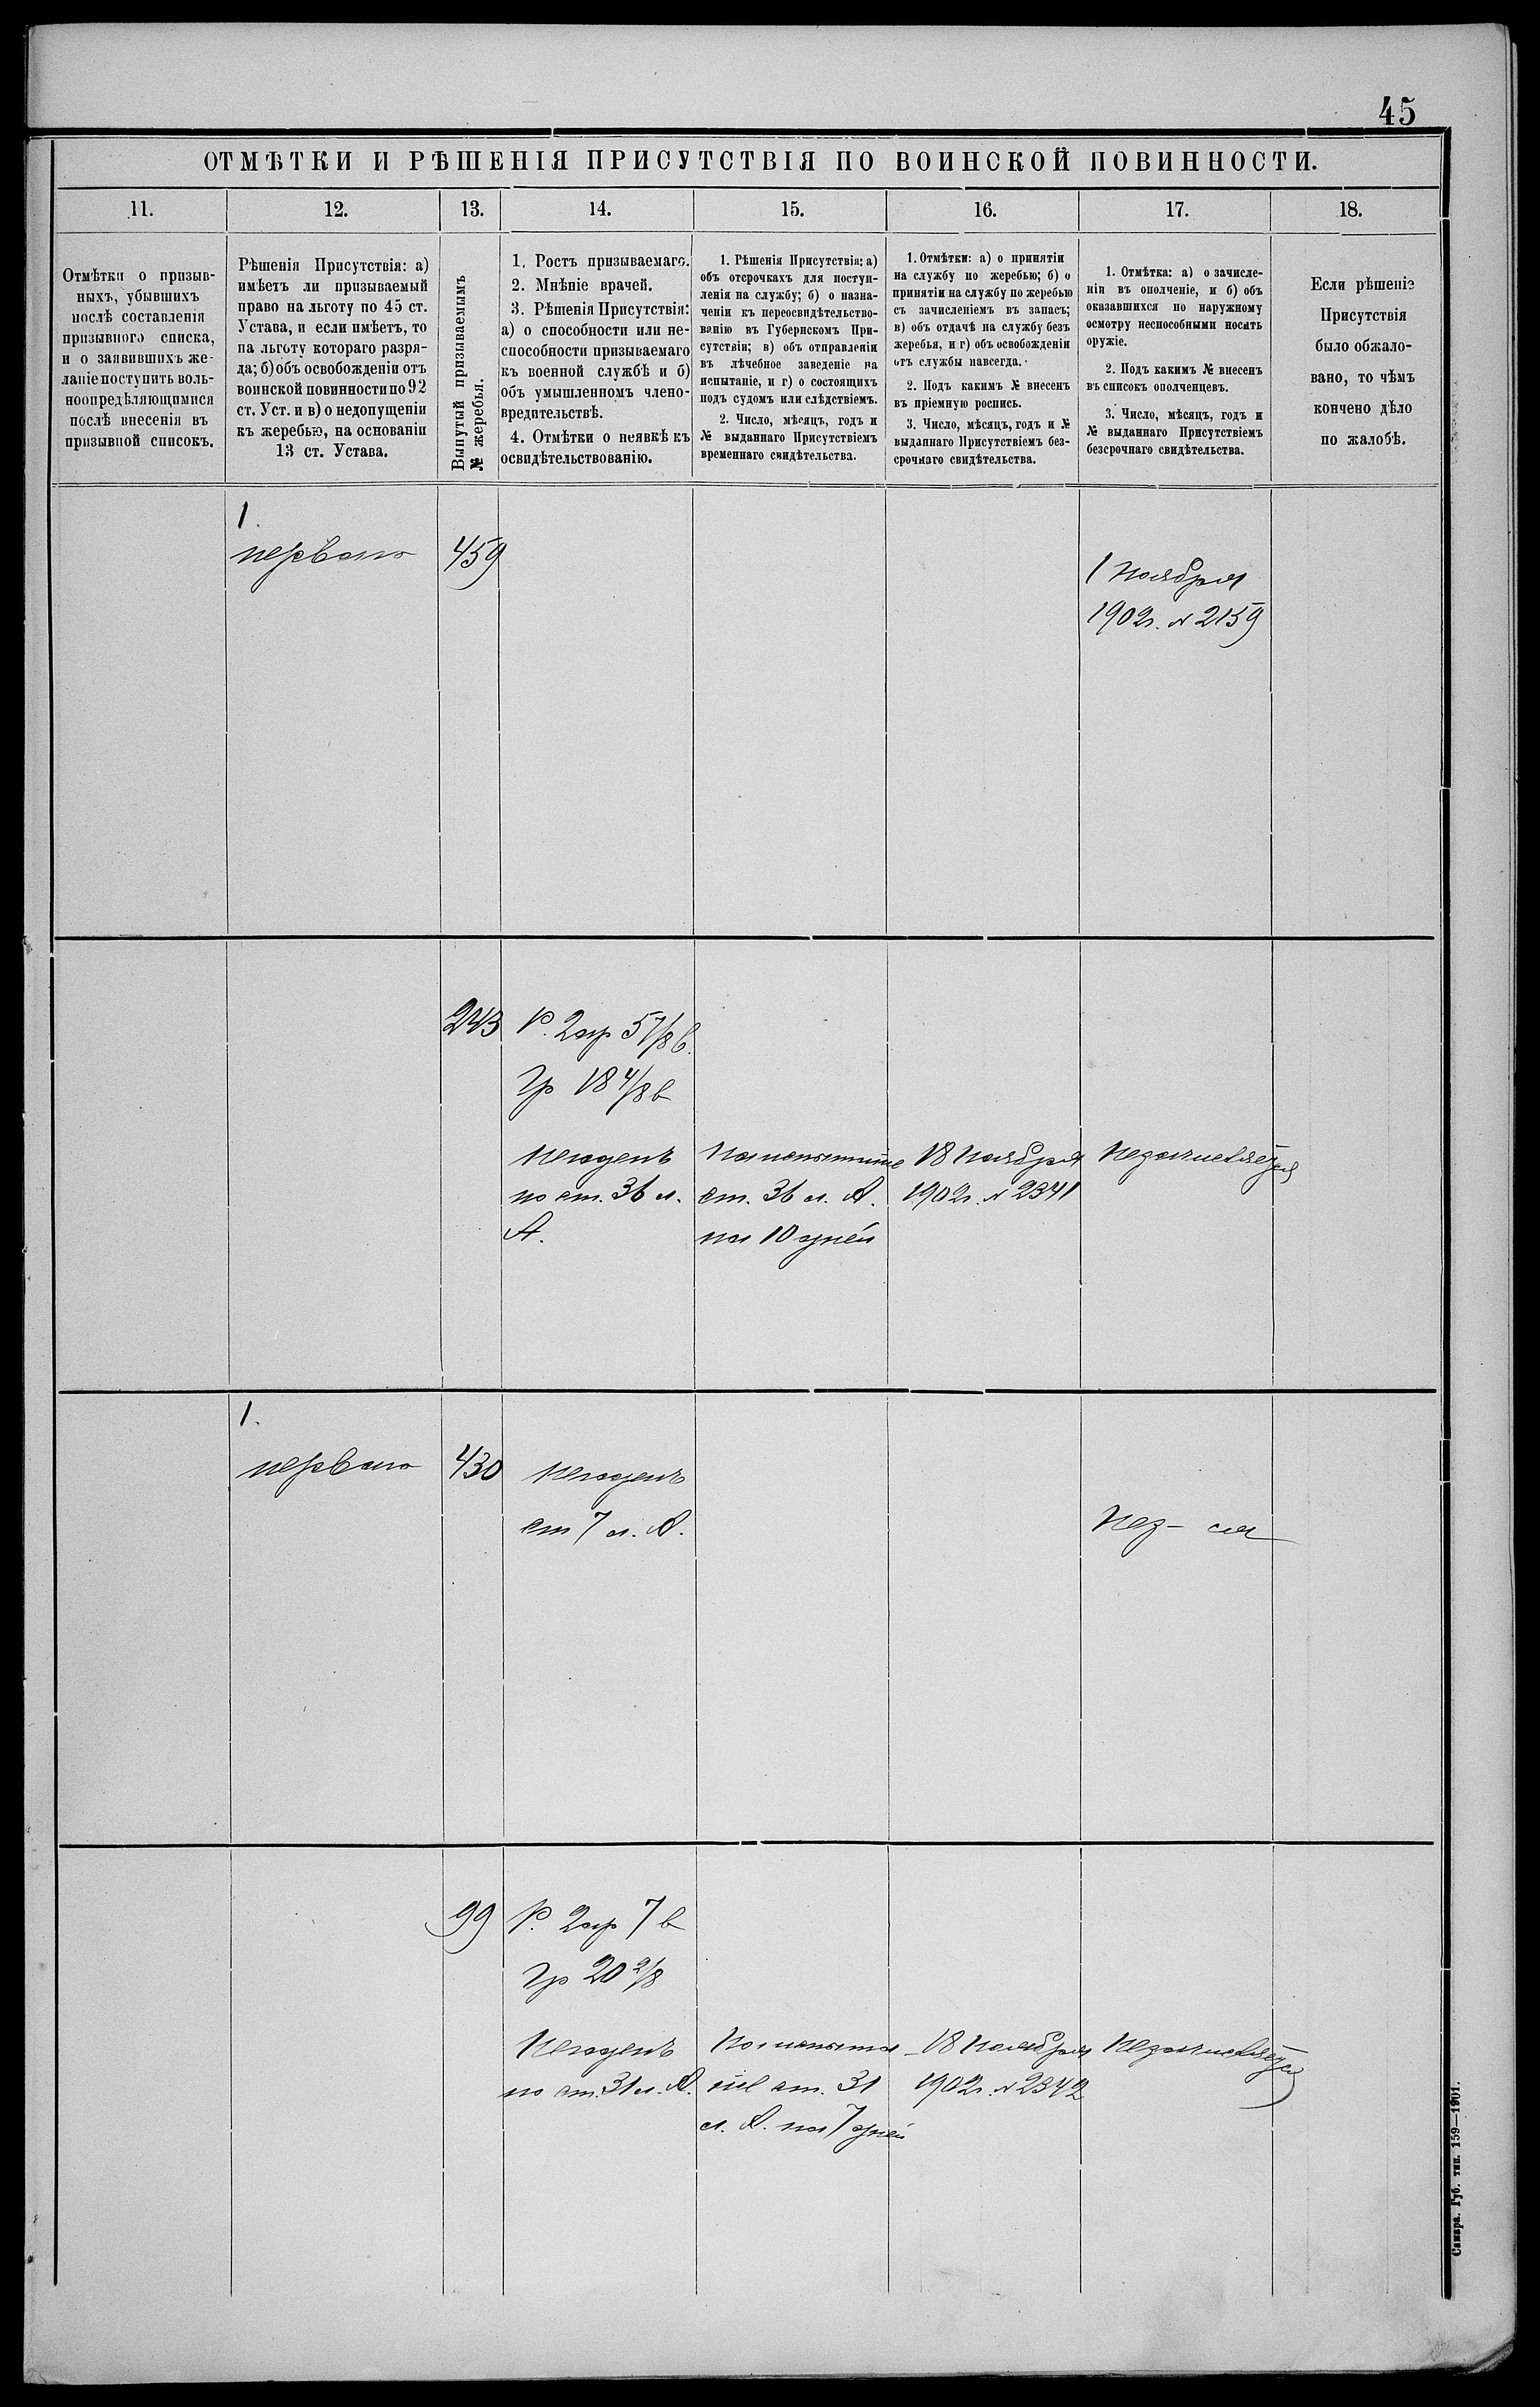 45
ОТМѢТКИ И РѢШЕНІЯ ПРИСУТСТВІЯ ПО ВОИНСКОЙ ПОВИННОСТИ.
11.
12.
13.
14.
15.
16.
17.
18.
Отмѣтки о призыв-
ныхъ, убывшихъ
послѣ составленія
призывного списка,
и о заявившихъ же-
ланіе поступить воль-
ноопредѣляющимися
послѣ внесенія въ
призывной списокъ.
Рѣшенія Присутствія: а)
имѣетъ ли призываемый
право на льготу по 45 ст.
Устава, и если имѣетъ, то
на льготу котораго разря-
да; б) объ освобожденіи отъ
воинской повинности по 92
ст. Уст. и в) о недопущеніи
къ жеребью, на основаніи
13 ст. Устава.
Вынутый призываемымъ
№ жеребья.
1. Ростъ призываемаго.
2. Мнѣніе врачей.
3. Рѣшенія Присутствія:
а) о способности или не-
способности призываемаго
къ военной службѣ и б)
объ умышленномъ члено-
вредительствѣ.
4. Отмѣтки о неявкѣ къ
освидѣтельствованію.
1. Рѣшенія Присутствія: а)
объ отсрочкахъ для поступ-
ленія на службу; б) о назна-
ченіи къ переосвидѣтельство-
ванію въ Губернскомъ При-
сутствіи; в) объ отправленіи
въ лѣчебное заведеніе на
испытаніе, и г) о состоящихъ
подъ судомъ или слѣдствіемъ.
2. Число, мѣсяцъ, годъ и
№ выданнаго Присутствіемъ
временнаго свидѣтельства.
1. Отмѣтки: а) о принятіи
на службу по жеребью; б) о
принятіи на службу по жеребью
съ зачисленіемъ въ запасъ;
в) объ отдачѣ на службу безъ
жеребья, и г) объ освобожденіи
отъ службы навсегда.
2. Подъ какимъ № внесенъ
въ пріемную роспись.
3. Число, мѣсяцъ, годъ и №
выданнаго Присутствіемъ без-
срочнаго свидѣтельства.
1. Отмѣтка: а) о зачисле-
ніи въ ополченіе, и б) объ
оказавшихся по наружному
осмотру неспособными носить
оружіе.
2. Подъ какимъ № внесенъ
въ списокъ ополченцевъ.
3. Число, мѣсяцъ, годъ и
№ выданнаго Присутствіемъ
безсрочнаго свидѣтельства.
Если рѣшеніе
Присутствія
было обжало-
вано, то чѣмъ
кончено дѣло
по жалобѣ.
1.
перваго
459
1 Ноября
1902г. № 2159
243
Р. 2 ар 5 7/8 в.
Гр 18 4/8 в
Негоденъ
по ст. 36 л.
А.
На испытаніе
ст. 36 л. А.
на 10 дней
18 Ноября
1902г. № 2341
Незачисляется
1.
перваго
430
Негоденъ
ст 7 л. А.
Нез- ся
99
Р. 2 ар 7 в
Гр 20 2/8
Негоденъ
по ст. 31 л. А.
На испыта-
ніе ст. 31
л. А. на 7 дней
18 Ноября
1902г. № 2342
Незачисляется
Самара. Губ. тип. 159—1901.